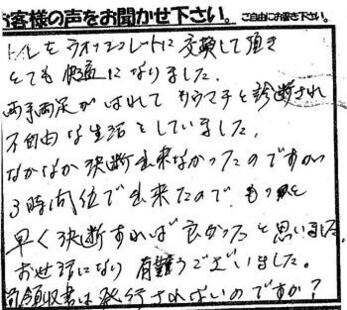 お客様の声をお聞かせ下さい。ご自由にお書き下さい。
トイレをウォシュレットに交換して頂き
とても快適になりました。
両手両足がはれてリウマチと診断され
不自由な生活をしていました。
なかなか決断出来なかったのですが
3時間位で出来たので、もっと
早く決断すれば良かったと思いました。
お世話になり有難うございました。
領収書は発行されないのですか?